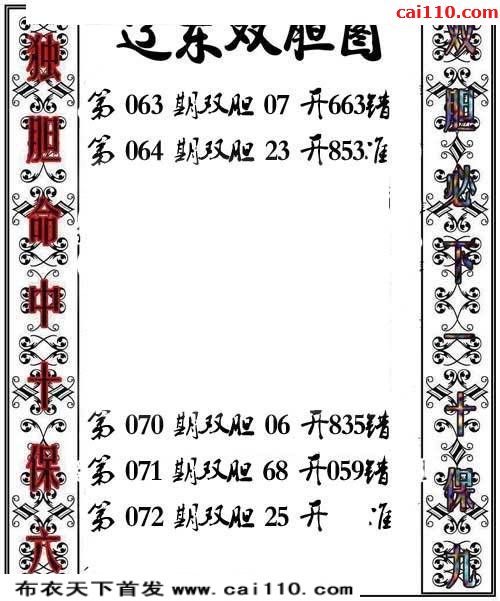 cai110.com
辽东双胆图
独胆命中十保六
第 063 期双胆 07 开663错
第 064 期双胆 23 开853准
第 070 期双胆 06 开835错
第 071 期双胆 68 开059错
第 072 期双胆 25 开 准
双胆必下一十保九
布衣天下首发 www.cai110.com